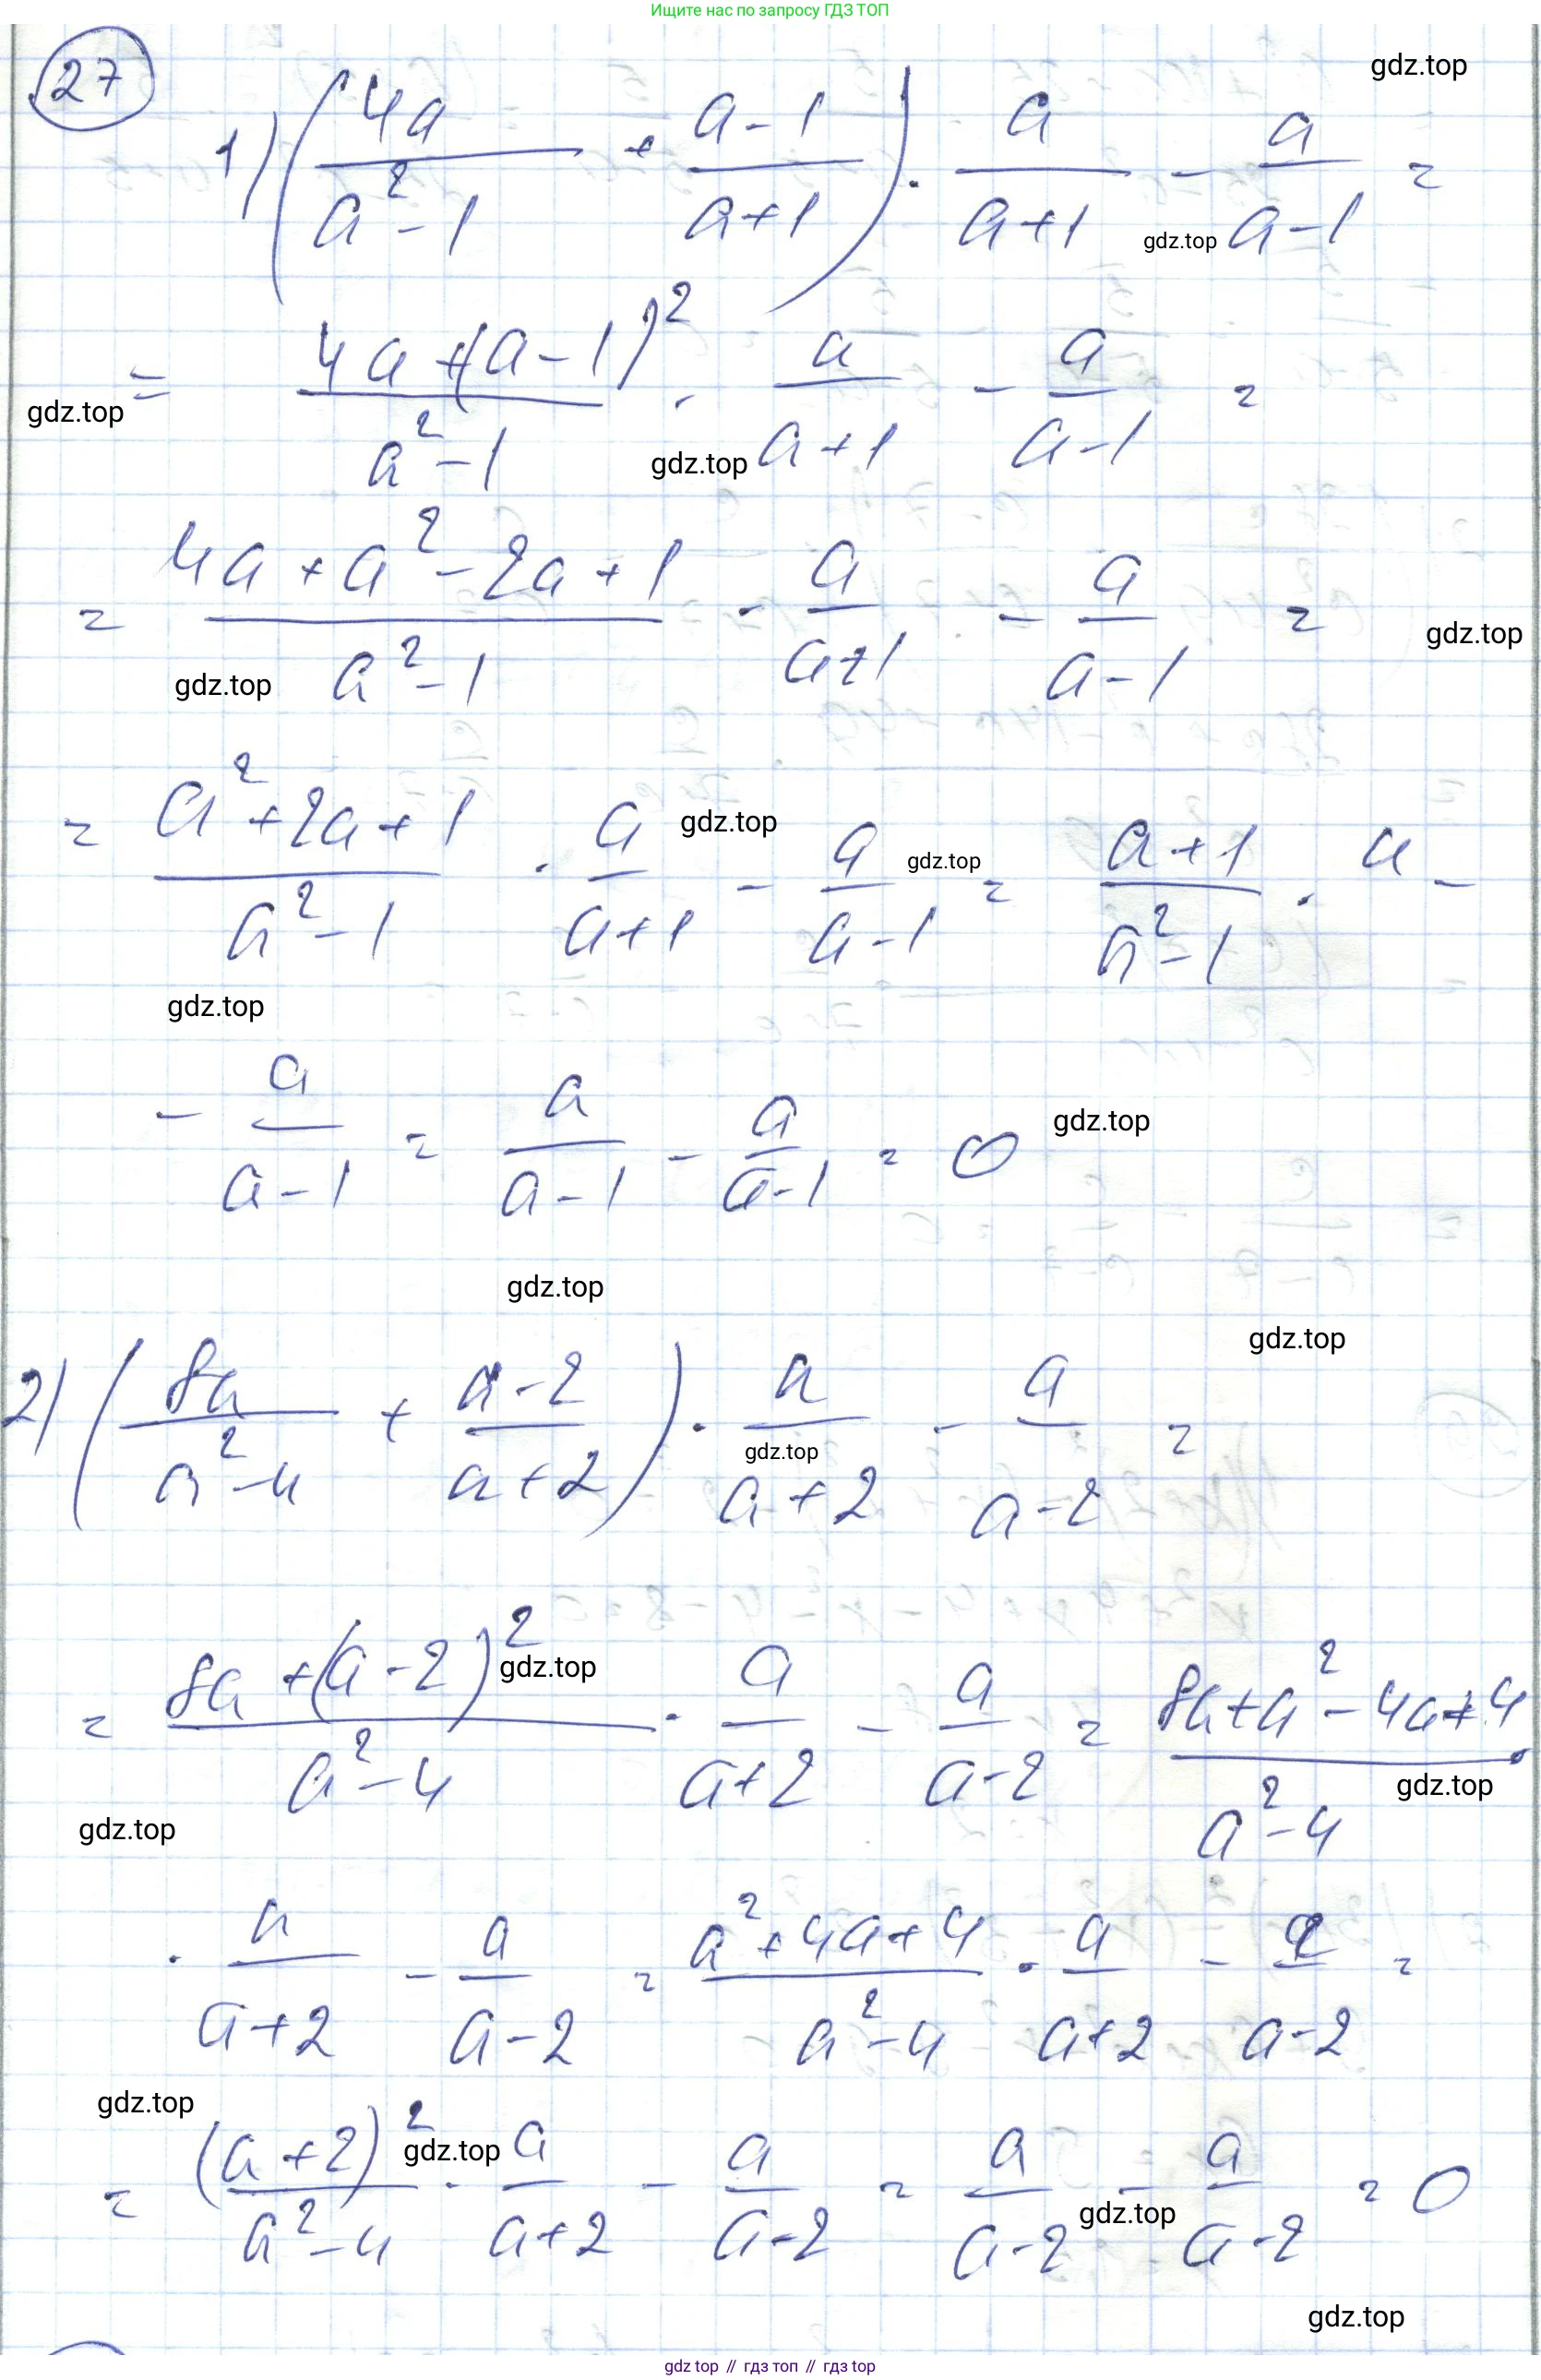 Ищите нас по запросу ГДЗ ТОП
27
gdz.top
1) (4a/(a²-1) + (a-1)/(a+1)) · a/(a+1) - a/(a-1) =
gdz.top
= (4a+(a-1)²)/(a²-1) · a/(a+1) - a/(a-1) =
gdz.top
gdz.top
= (4a+a²-2a+1)/(a²-1) · a/(a+1) - a/(a-1) =
gdz.top
gdz.top
= (a²+2a+1)/(a²-1) · a/(a+1) - a/(a-1) = (a+1)/(a²-1) · a -
gdz.top
gdz.top
gdz.top
- a/(a-1) = a/(a-1) - a/(a-1) = 0
gdz.top
gdz.top
gdz.top
2) (8a/(a²-4) + (a-2)/(a+2)) · a/(a+2) - a/(a-2) =
gdz.top
= (8a+(a-2)²)/(a²-4) · a/(a+2) - a/(a-2) = (8a+a²-4a+4)/(a²-4) ·
gdz.top
gdz.top
gdz.top
· a/(a+2) - a/(a-2) = (a²+4a+4)/(a²-4) · a/(a+2) - a/(a-2) =
gdz.top
= (a+2)²/(a²-4) · a/(a+2) - a/(a-2) = a/(a-2) - a/(a-2) = 0
gdz.top
gdz.top
gdz.top
gdz top // гдз топ // гдз top